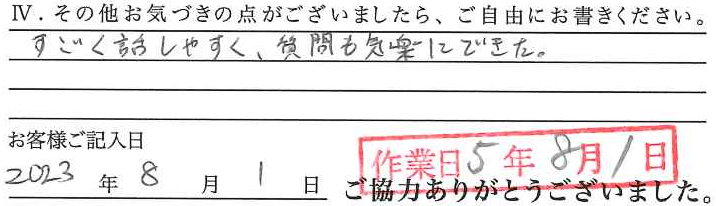 Ⅳ．その他お気づきの点がございましたら、ご自由にお書きください。
すごく話しやすく、質問も気楽にできた。
お客様ご記入日
作業日5年8月1日
2023年8月1日
ご協力ありがとうございました。